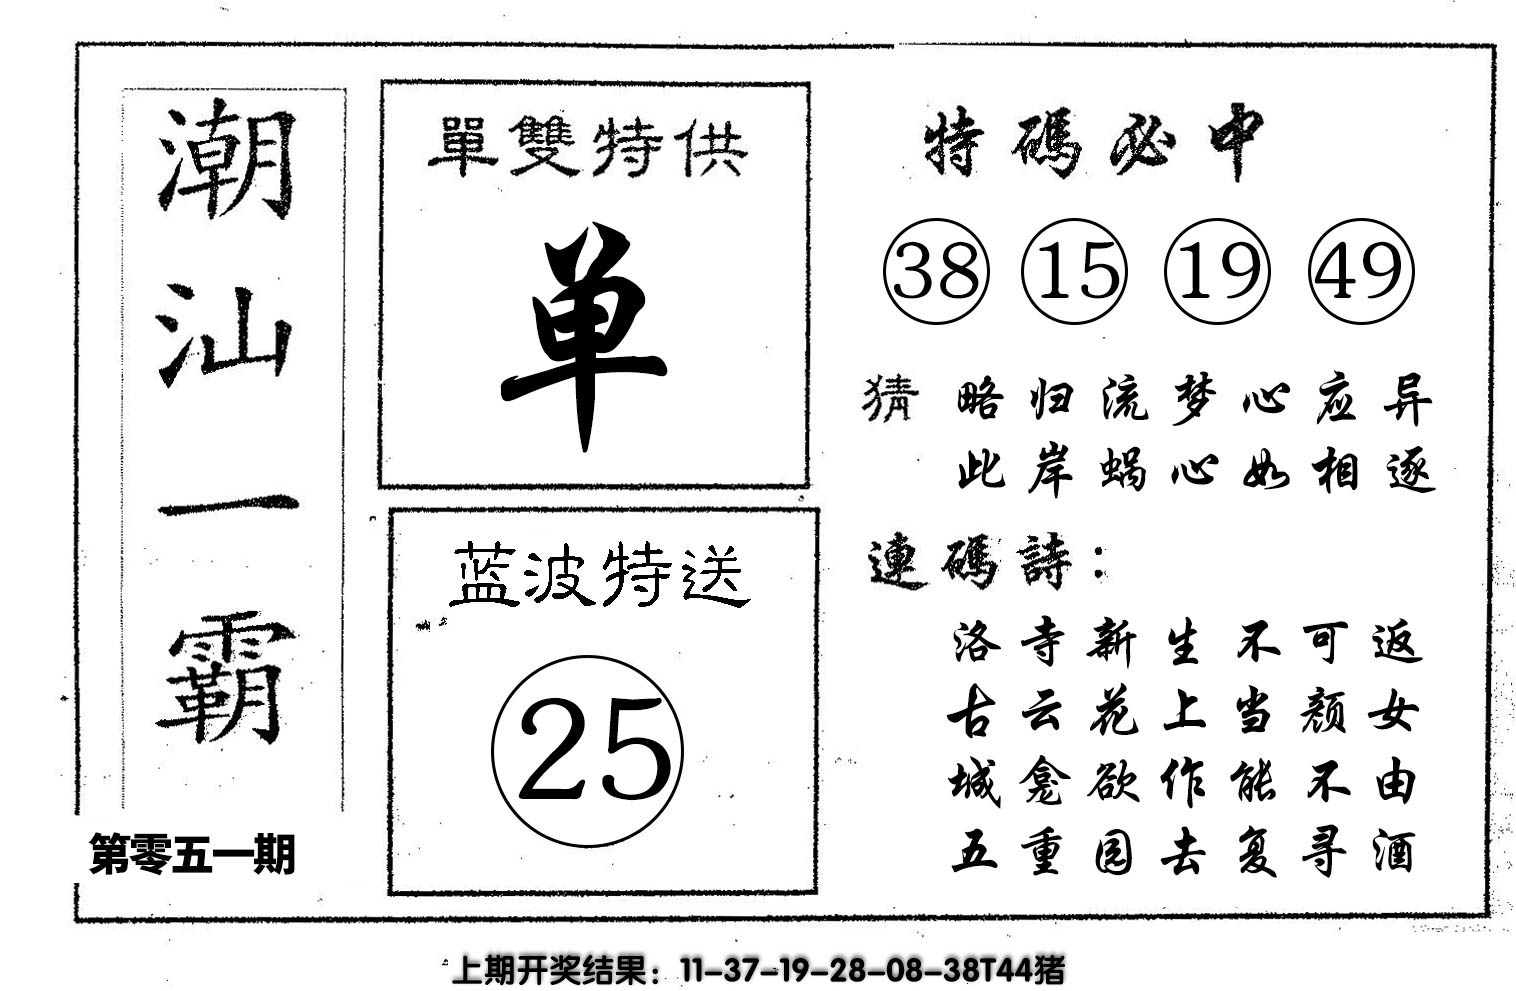 潮汕一霸
第零五一期
單雙特供
单
蓝波特送
25
特碼必中
38 15 19 49
猜 略归流梦心应异
此岸蜗心如相逐
連碼詩：
洛寺新生不可返
古云花上当颜女
城龛欲作能不由
五重园去复寻酒
上期开奖结果：11-37-19-28-08-38T44猪